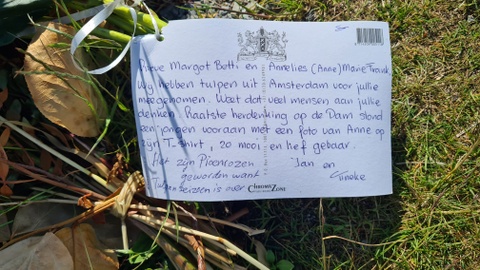 Lieve Margot Betti en Annelies (Anne) Marie Frank
Wij hebben tulpen uit Amsterdam voor jullie
meegenomen. Weet dat veel mensen aan jullie
denken. Laatste herdenking op de Dam stond
een jongen vooraan met een foto van Anne op
zijn T-shirt, zo mooi en lief gebaar.
Het zijn Pioenrozen Jan en
geworden want Tineke
Tulpenseizoen is over